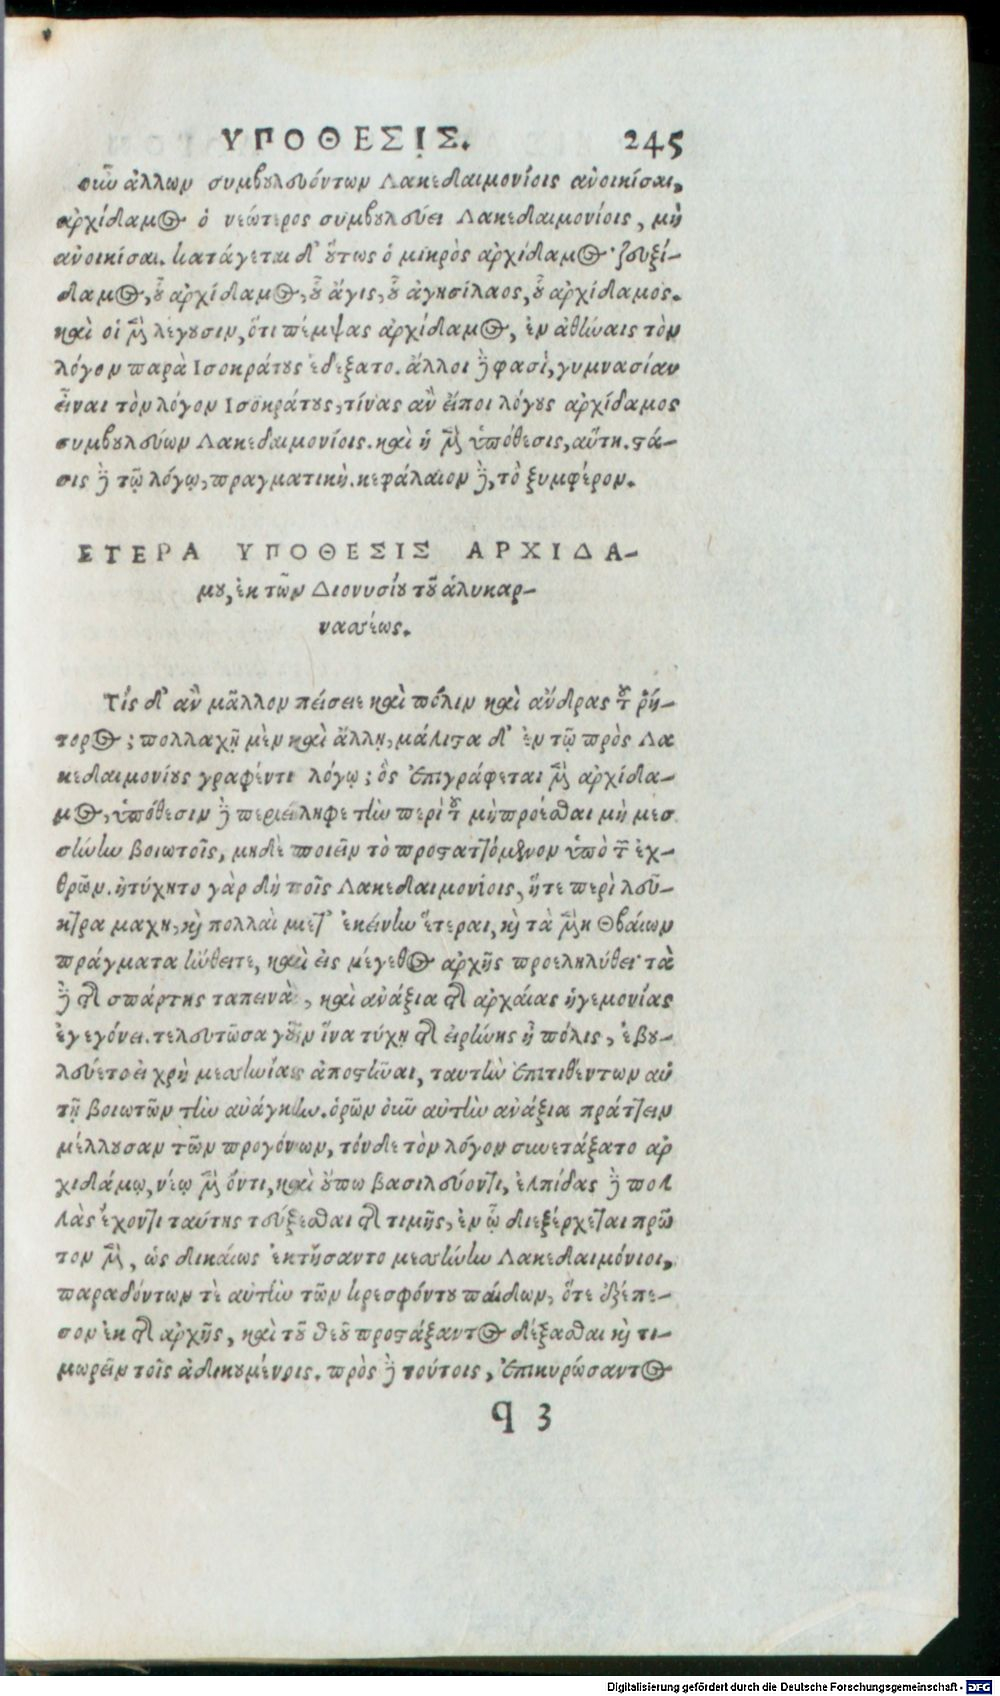 ΥΠΟΘΕΣΙΣ. 245
οὖν ἄλλων συμβουλευόντων Λακεδαιμονίοις ἀνοικίσαι,
ἀρχίδαμος ὁ νεώτερος συμβουλεύει Λακεδαιμονίοις, μὴ
ἀνοικίσαι. κατάγεται δ' οὕτως ὁ μικρὸς ἀρχίδαμος· ζευξί-
δαμος, οὗ ἀρχίδαμος, οὗ ἄγις, οὗ ἀγησίλαος, οὗ ἀρχίδαμος.
καὶ οἱ μὲν λέγουσιν, ὅτι πέμψας ἀρχίδαμος, ἐν ἀθήναις τὸν
λόγον παρὰ Ισοκράτους ἐδέξατο. ἄλλοι δέ φασὶ, γυμνασίαν
εἶναι τὸν λόγον Ισοκράτους, τίνας ἂν εἴποι λόγους ἀρχίδαμος
συμβουλεύων Λακεδαιμονίοις. καὶ ἡ μὲν ὑπόθεσις, αὕτη. στά-
σις δὲ τῷ λόγῳ, πραγματικὴ. κεφάλαιον δὲ, τὸ ξυμφέρον.
ΕΤΕΡΑ ΥΠΟΘΕΣΙΣ ΑΡΧΙΔΑ-
μου, ἐκ τῶν Διονυσίου τοῦ ἁλυκαρ-
νασσέως.
Τίς δ' ἂν μᾶλλον πείσειε καὶ πόλιν καὶ ἄνδρας τοῦ ῥή-
τορος; πολλαχῇ μὲν καὶ ἄλλῃ, μάλιστα δ' ἐν τῷ πρὸς Λα
κεδαιμονίους γραφέντι λόγῳ; ὃς ἐπιγράφεται μὲν ἀρχίδα-
μος, ὑπόθεσιν δὲ περιείληφε τὴν περὶ τοῦ μὴ προέσθαι μὴ μεσ
σήνην βοιωτοῖς, μηδὲ ποιεῖν τὸ προσταττόμενον ὑπὸ τῶν ἐχ-
θρῶν. ητύχητο γὰρ δὴ τοῖς Λακεδαιμονίοις, ἥτε περὶ λεῦ-
κτρα μάχη, καὶ πολλαὶ μετ' ἐκείνην ἕτεραι, καὶ τὰ μὲν Θηβαίων
πράγματα ηὔθειτε, καὶ εἰς μέγεθος ἀρχῆς προεληλύθει· τὰ
δὲ τῆς σπάρτης ταπεινὰ, καὶ ἀνάξια τῆς ἀρχαίας ἡγεμονίας
ἐγεγόνει. τελευτῶσα γοῦν ἵνα τύχῃ τῆς εἰρήνης ἡ πόλις, ἐβου-
λεύετο εἰ χρὴ μεσσηνίας ἀποστῆναι, ταυτὴν ἐπιτιθέντων αὐ
τῇ βοιωτῶν τὴν ἀνάγκην. ὁρῶν οὖν αὐτὴν ἀνάξια πράττειν
μέλλουσαν τῶν προγόνων, τόνδε τὸν λόγον συνετάξατο ἀρ
χιδάμῳ, νέῳ μὲν ὄντι, καὶ οὔπω βασιλεύοντι, ἐλπίδας δὲ πολ
λὰς ἔχοντι ταύτης τεύξεσθαι τῆς τιμῆς, ἐν ᾧ διεξέρχεται πρῶ
τον μὲν, ὡς δικαίως ἐκτήσαντο μεσσήνην Λακεδαιμόνιοι,
παραδόντων τὲ αὐτὴν τῶν κρεσφόντου παίδων, ὅτε ἐξέπε-
σον ἐκ τῆς ἀρχῆς, καὶ τοῦ θεοῦ προστάξαντος δέξασθαι καὶ τι-
μωρεῖν τοῖς ἀδικουμένοις. πρὸς δὲ τούτοις, ἐπικυρώσαντος
q 3
Digitalisierung gefördert durch die Deutsche Forschungsgemeinschaft - DFG